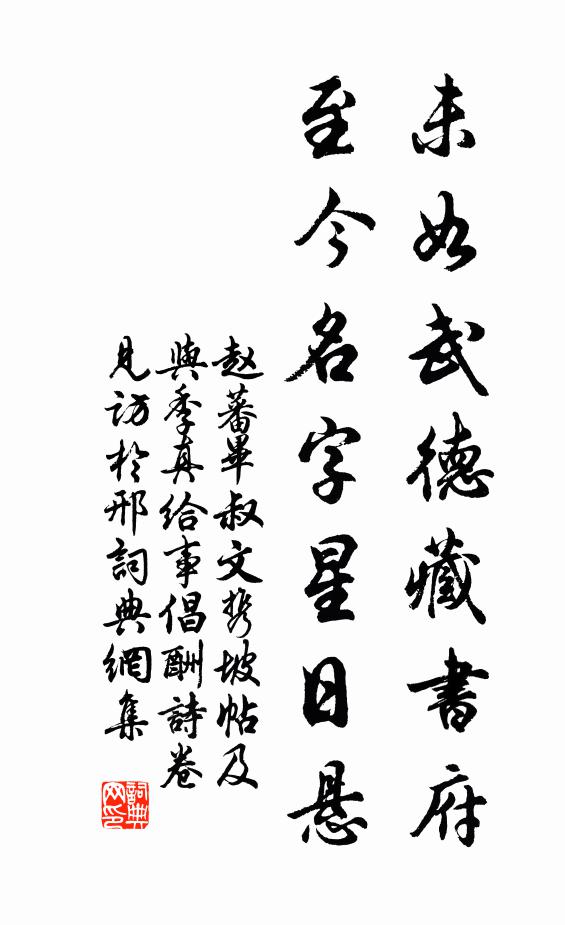 未如武德藏書府
至今名字星日悬
赵蕃畢叔文携坡帖及
與季真给事倡酬詩卷
見訪於邢詞典網集
詞典
网印